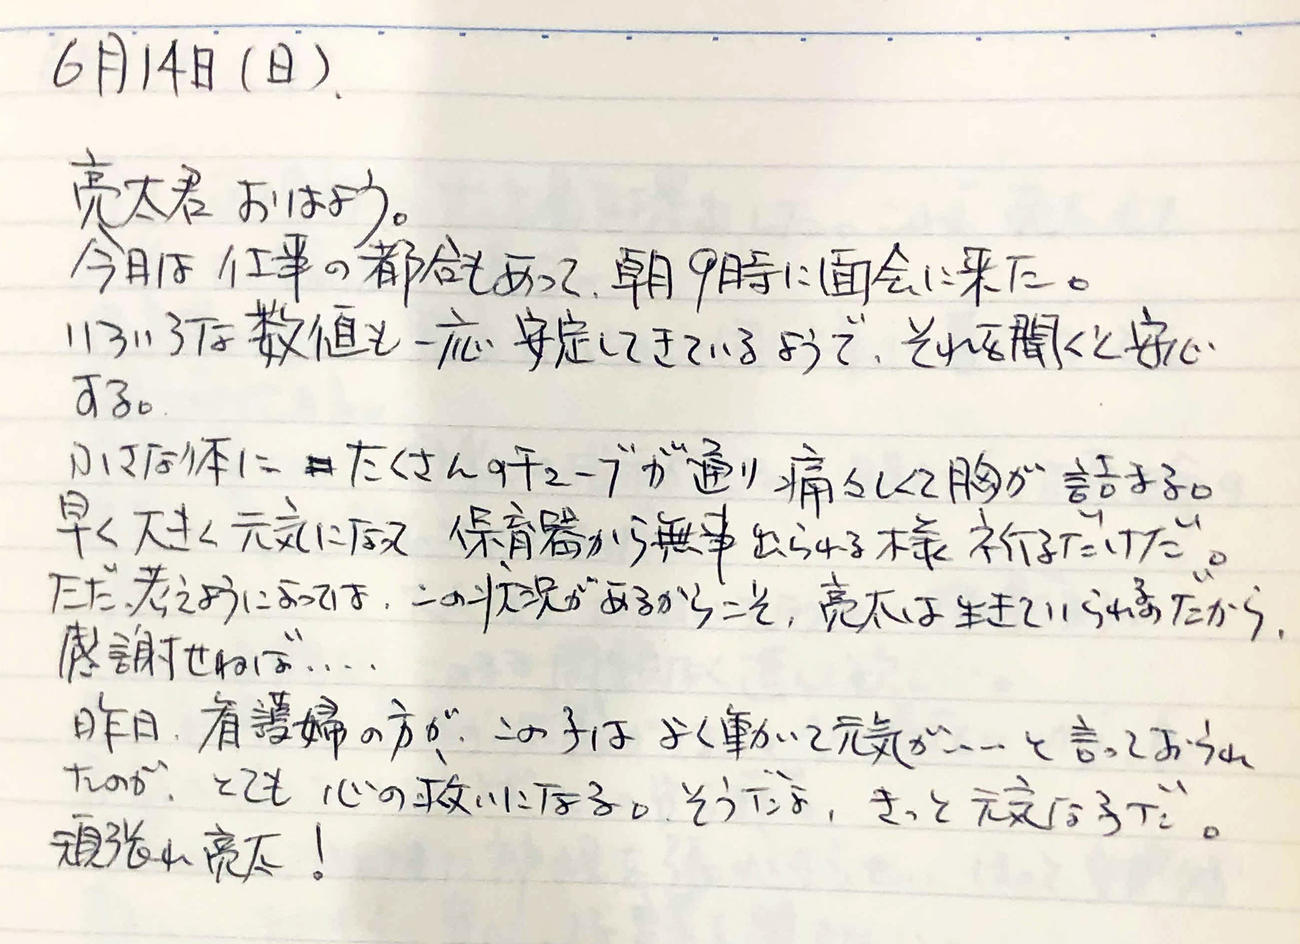 6月14日(日)、
亮太君 おはよう。
今日は 仕事の都合もあって、朝9時に面会に来た。
いろいろな数値も一応 安定してきているようで、それを聞くと安心
する。
小さな体に たくさんのチューブが通り 痛々しくて胸が 詰まる。
早く大きく 元気になって 保育器から無事出られる様 祈るだけだ。
ただ、考えようによっては、この状況があるからこそ、亮太は生きていられるのだから、
感謝せねば‥‥
昨日、看護婦の方が、この子は よく動いて元気が‥‥と言っておられ
たのが、とても 心の救いになる。そうだよ、きっと 元気な子だ。
頑張れ 亮太!